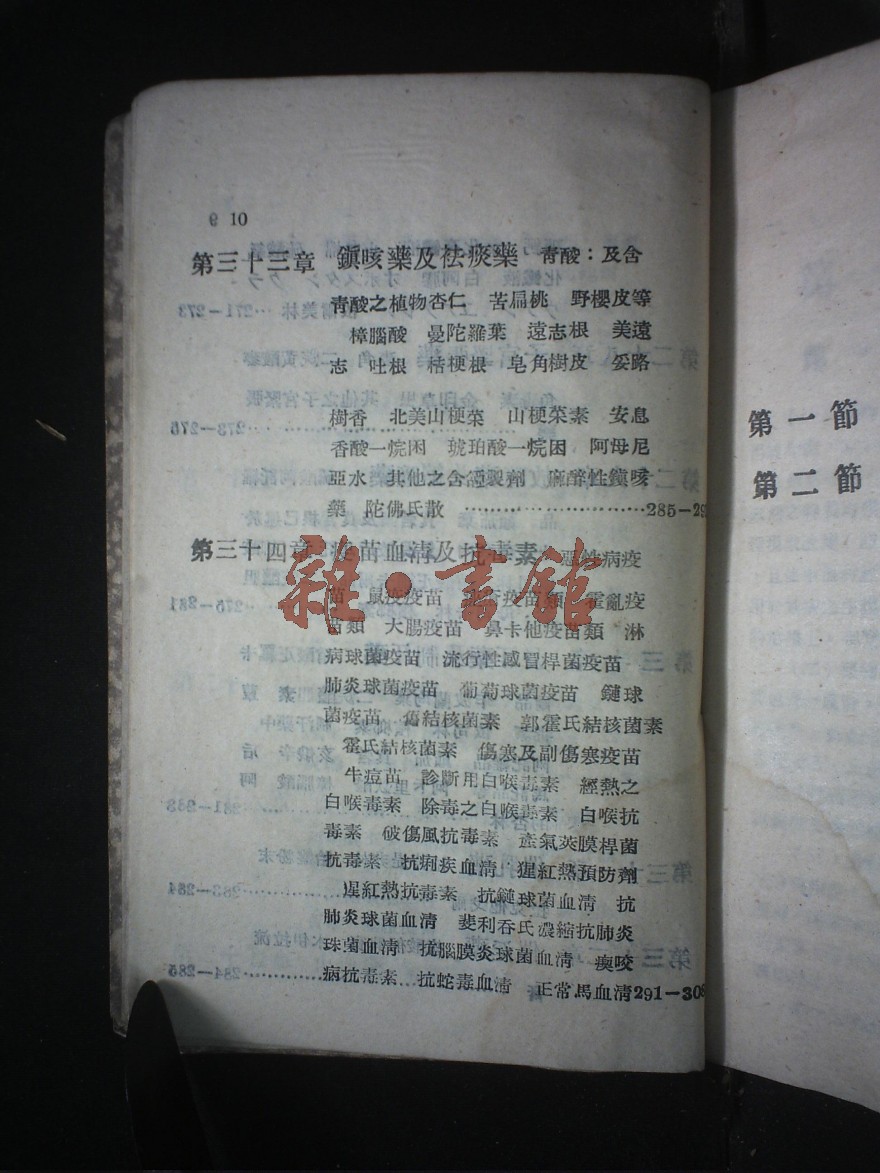 10
第三十三章 鎭咳藥及祛痰藥 青酸：及含
青酸之植物杏仁 苦扁桃 野櫻皮等
樟腦酸 曼陀羅葉 遠志根 美遠
志 吐根 桔梗根 皂角樹皮 妥路
樹香 北美山梗菜 山梗菜素 安息
香酸一烷困 琥珀酸一烷困 阿母尼
亞水 其他之含 製劑 麻醉性鎭咳
藥 陀佛氏散 ……………………285—29
第三十四章 疫苗血淸及抗毒素 惡性病疫
苗 鼠疫疫苗 疫苗類 霍亂疫
苗類 大腸疫苗 鼻卡他疫苗類 淋
病球菌疫苗 流行性感冒桿菌疫苗
肺炎球菌疫苗 葡萄球菌疫苗 鏈球
菌疫苗 舊結核菌素 郭霍氏結核菌素
霍氏結核菌素 傷寒及副傷寒疫苗
牛痘苗 診斷用白喉毒素 經熱之
白喉毒素 除毒之白喉毒素 白喉抗
毒素 破傷風抗毒素 產氣莢膜桿菌
抗毒素 抗痢疾血淸 猩紅熱預防劑
猩紅熱抗毒素 抗鏈球菌血淸 抗
肺炎球菌血淸 斐利吞氏濃縮抗肺炎
珠菌血淸 抗腦膜炎球菌血淸 瘈咬
病抗毒素 抗蛇毒血淸 正常馬血淸291—308
雜·書館
第一節
第二節